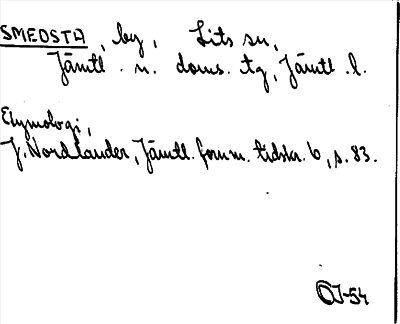 SMEDSTA, by, Lits sn,
Jämtl. n. doms. tg, Jämtl. l.
Etymologi,
J. Nordlander, Jämtl. fornm. tidskr. 6, s. 83.
OJ-54